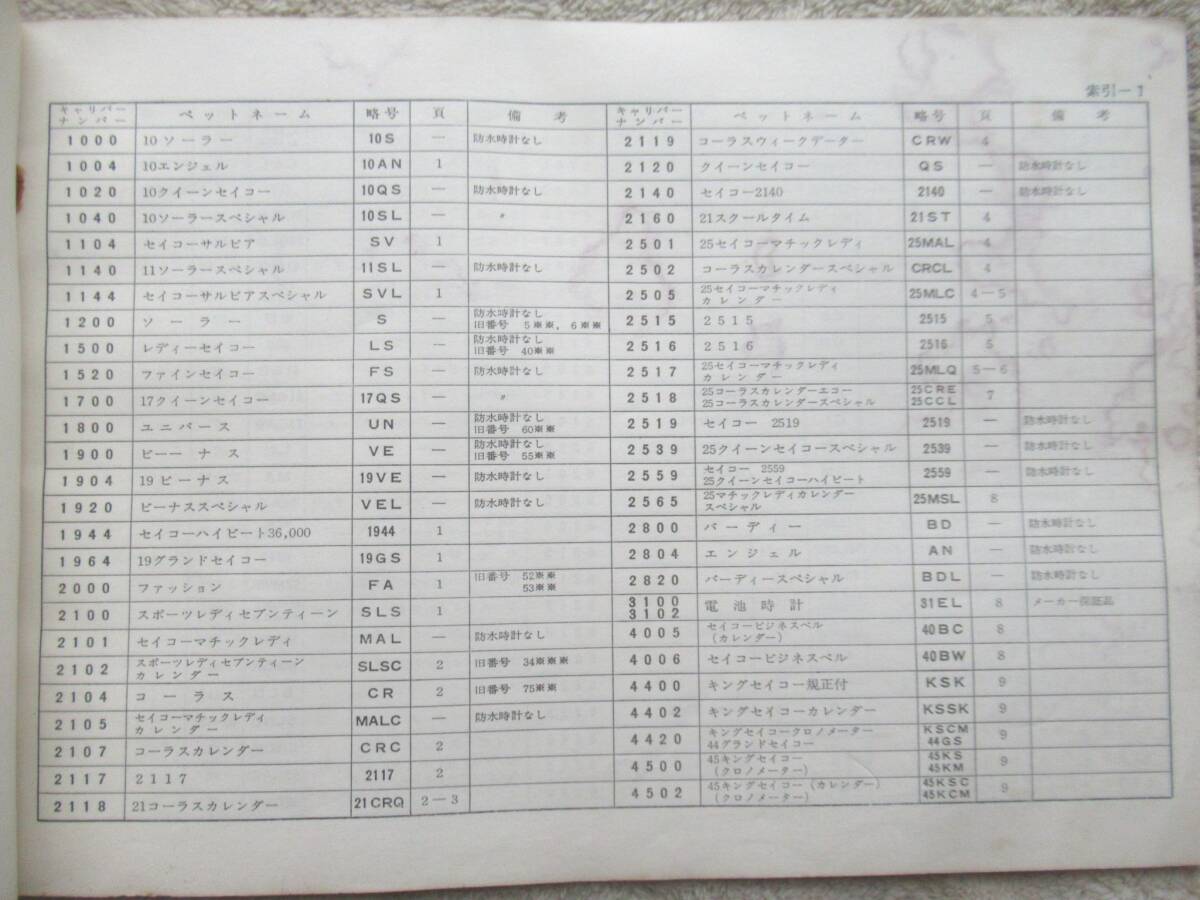 索引－1
キャリバーナンバー ペットネーム 略号 頁 備考
1000 10ソーラー 10S — 防水時計なし
1004 10エンジェル 10AN 1
1020 10クイーンセイコー 10QS — 防水時計なし
1040 10ソーラースペシャル 10SL — 〃
1104 セイコーサルビア SV 1
1140 11ソーラースペシャル 11SL — 防水時計なし
1144 セイコーサルビアスペシャル SVL 1
1200 ソーラー S — 防水時計なし 旧番号 5※※, 6※※
1500 レディーセイコー LS — 防水時計なし 旧番号 40※※
1520 ファインセイコー FS — 防水時計なし
1700 17クイーンセイコー 17QS — 〃
1800 ユニバース UN — 防水時計なし 旧番号 60※※
1900 ビーナス VE — 防水時計なし 旧番号 55※※
1904 19ビーナス 19VE — 防水時計なし
1920 ビーナススペシャル VEL — 防水時計なし
1944 セイコーハイビート36,000 1944 1
1964 19グランドセイコー 19GS 1
2000 ファッション FA 1 旧番号 52※※ 53※※
2100 スポーツレディセブンティーン SLS 1
2101 セイコーマチックレディ MAL — 防水時計なし
2102 スポーツレディセブンティーンカレンダー SLSC 2 旧番号 34※※※
2104 コーラス CR 2 旧番号 75※※
2105 セイコーマチックレディカレンダー MALC — 防水時計なし
2107 コーラスカレンダー CRC 2
2117 2117 2117 2
2118 21コーラスカレンダー 21CRQ 2－3
キャリバーナンバー ペットネーム 略号 頁 備考
2119 コーラスウィークデーター CRW 4
2120 クイーンセイコー QS — 防水時計なし
2140 セイコー2140 2140 — 防水時計なし
2160 21スクールタイム 21ST 4
2501 25セイコーマチックレディ 25MAL 4
2502 コーラスカレンダースペシャル CRCL 4
2505 25セイコーマチックレディカレンダー 25MLC 4－5
2515 2515 2515 5
2516 2516 2516 5
2517 25セイコーマチックレディカレンダー 25MLQ 5－6
2518 25コーラスカレンダーエコー 25コーラスカレンダースペシャル 25CRE 25CCL 7
2519 セイコー 2519 2519 — 防水時計なし
2539 25クイーンセイコースペシャル 2539 — 防水時計なし
2559 セイコー 2559 25クイーンセイコーハイビート 2559 — 防水時計なし
2565 25マチックレディカレンダースペシャル 25MSL 8
2800 バーディー BD — 防水時計なし
2804 エンジェル AN — 防水時計なし
2820 バーディースペシャル BDL — 防水時計なし
3100 3102 電池時計 31EL 8 メーカー保証品
4005 セイコービジネスベル（カレンダー） 40BC 8
4006 セイコービジネスベル 40BW 8
4400 キングセイコー規正付 KSK 9
4402 キングセイコーカレンダー KSSK 9
4420 キングセイコークロノメーター 44グランドセイコー KSCM 44GS 9
4500 45キングセイコー（クロノメーター） 45KS 45KM 9
4502 45キングセイコー（カレンダー）（クロノメーター） 45KSC 45KCM 9